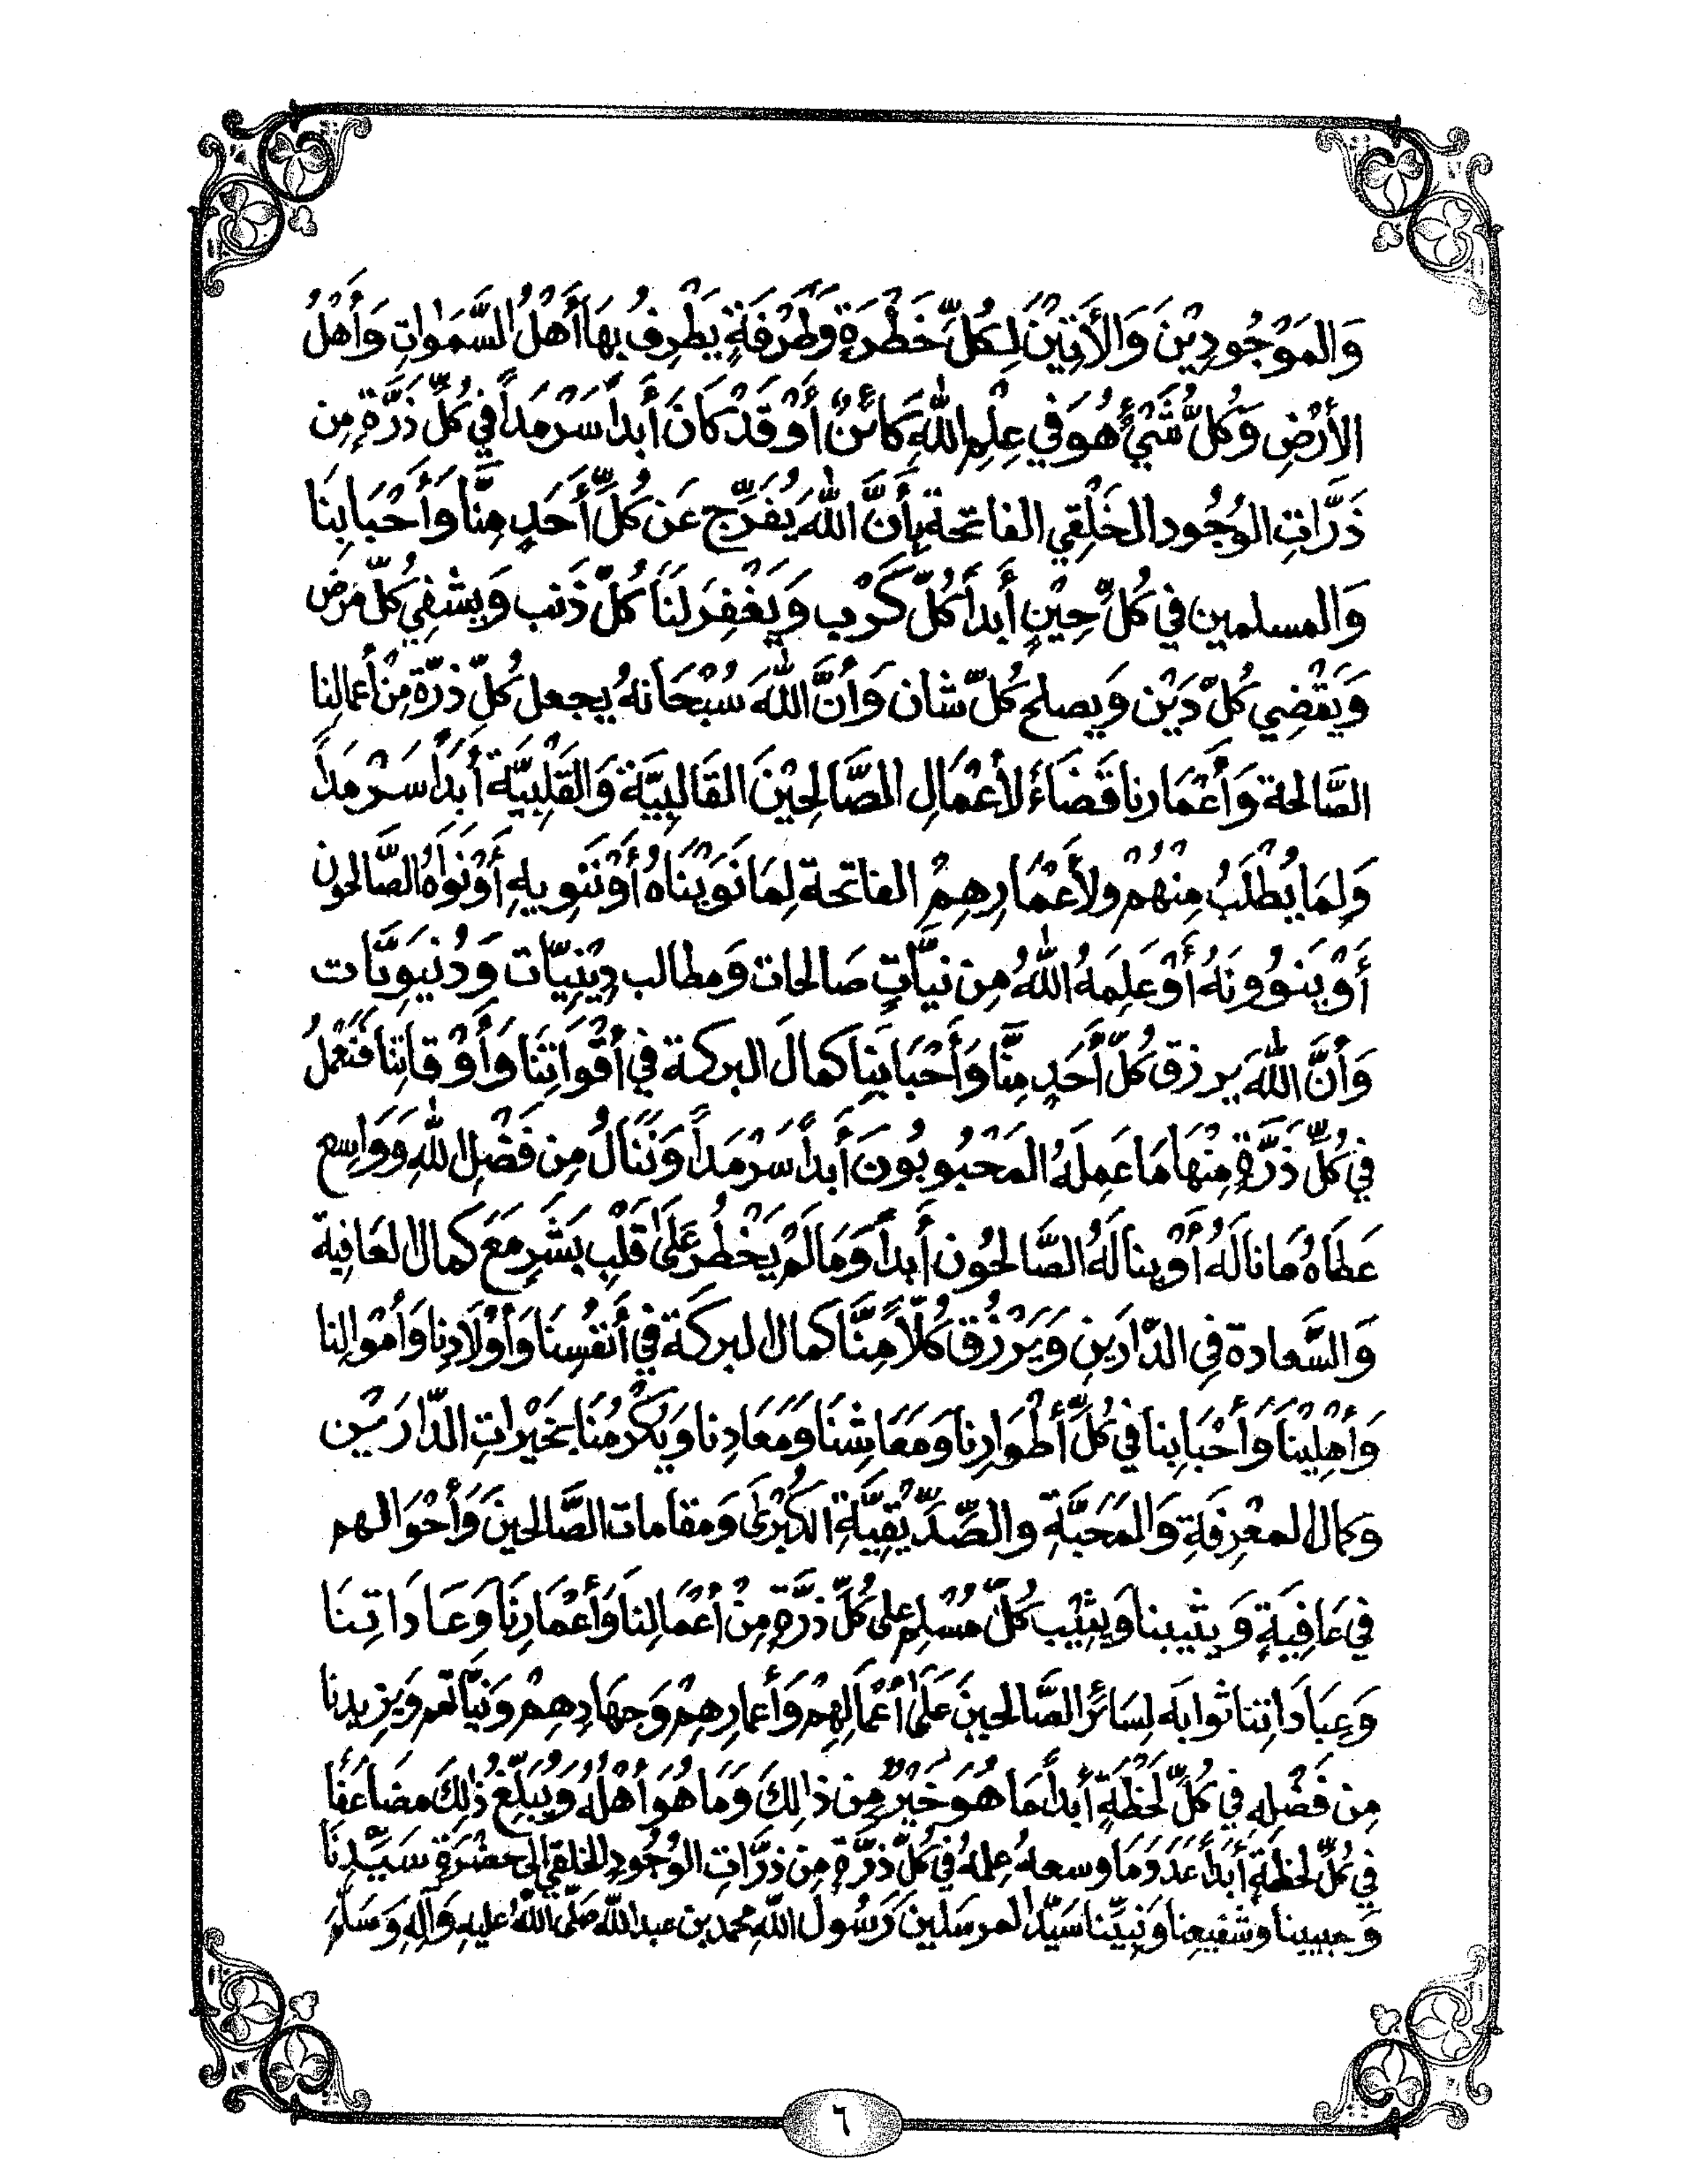 وَالمَوْجُودِيْنَ وَالأَتِيْنَ لِكُلِّ خَطْرَةٍ وَطَرْفَةٍ يَطْرِفُ بِهَا أَهْلُ السَّمَوٰاتِ وَأَهْلُ
الأَرْضِ وَكُلُّ شَيْءٍ هُوَ فِي عِلْمِ اللهِ كَائِنٌ أَوْ قَدْ كَانَ أَبداً سَرْمَداً فِي كُلِّ ذَرَّةٍ مِن
ذَرَّاتِ الوُجُودِ الخَلْقِي الفاتحة بِأَنَّ اللهَ يُفَرِّج عَن كُلِّ أَحَدٍ مِنَّا وَأَحْبَابِنَا
وَالمسلمين فِي كُلِّ حِيْنٍ أَبداً كُلَّ كَرْب وَيَغْفِرَ لَنَا كُلَّ ذَنب وَيشْفِي كُلَّ مَرَض
وَيَقْضِي كُلَّ دَيْن وَيصلح كُلَّ شان وَأَنَّ اللهَ سُبْحَانهُ يجعل كُلّ ذرّة مِنْ أَعمالِنا
الصَّالحة وَأَعْمَارنا قَضَاءً لأَعْمَالِ الصَّالِحِيْنَ القَالَبِيَّة وَالقَلْبِيَّة أَبَداً سَرْمَداً
وَلِمَا يُطْلَبُ مِنْهُمْ ولأَعْمَارِهِمْ الفاتحة لِمَا نَوَيْنَاهُ أَوْ نَنْوِيهِ أَوْ نَوَاهُ الصَّالحون
أَوْ يَنْوُونَهُ أَوْ عَلِمَهُ اللهُ مِن نيَّاتٍ صَالحات وَمطالب دِيْنِيّات وَدُنْيَوِيَّات
وَأَنَّ اللهَ يرزق كُلَّ أَحَدٍ مِنَّا وَأَحْبَابِنَا كمالَ البركة فِي أَقْوَاتِنَا وَأَوْقاتِنا فَنَعْمَلُ
فِي كُلِّ ذَرَّةٍ مِنْهَا مَا عَمِلَهُ المَحْبُوبُونَ أَبداً سَرْمَداً وَنَنَالُ مِن فَضْلِ اللهِ وَوَاسِع
عَطَاهُ مَا نالَهُ أَوْ ينالَهُ الصَّالحُون أَبداً وَمَا لَمْ يَخْطُر عَلَىٰ قَلْبِ بَشَرٍ مَعَ كَمال العَافِية
وَالسَّعادة فِي الدَّارَينِ وَيَرْزُق كُلّاً مِنَّا كمال البركَة فِي أَنفُسِنَا وَأَوْلَادِنا وَأَمْوَالِنا
وَأَهْلِيْنَا وَأَحْبَابِنا فِي كُلِّ أَطْوَارِنا وَمَعَاشِنَا وَمَعَادِنا وَيُكْرِمُنَا بخَيْرَاتِ الدَّارَيْن
وَكمال المعْرِفَةِ وَالمَحَبَّةِ والصِّدِّيْقِيَّةِ الكُبْرَىٰ وَمقامات الصَّالحينَ وَأَحْوَالهم
فِي عَافِيَةٍ وَيثيبنا وَيثِيْب كُلَّ مُسْلِمٍ على كُلِّ ذَرَّةٍ مِنْ أَعْمَالِنَا وَأَعْمَارِنَا وَعَادَاتِنَا
وَعِبَادَاتِنا ثوابَه لِسَائرِ الصَّالحينَ عَلَىٰ أَعْمَالِهِمْ وَأَعمارِهِمْ وَجِهَادِهِمْ وَنيَّاتهم وَيزيدنا
مِن فَضْلِهِ فِي كُلِّ لَحْظَةٍ أَبداً مَا هُوَ خَيْرٌ مِن ذٰلِكَ وَمَا هُوَ أَهْلُهُ وَيُبَلِّغ ذٰلِكَ مضَاعَفًا
فِي كُلِّ لحظَةٍ أَبَداً عَدَدَ مَا وسعهُ عِلمهُ فِي كُلِّ ذرَّةٍ مِن ذرَّاتِ الوُجُودِ الخلقي إلى حضْرَةِ سَيِّدِنَا
وَحبيبنا وشَفيعِنا وَنبيِّنا سَيِّد المرسَلين رَسُول اللهِ محمد بن عبدالله صَلَّى اللهُ عليهِ وَآلِهِ وَسَلَّمَ
٦